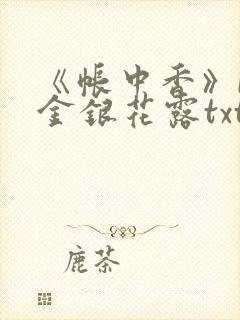 《帐中香》
金银花露txt
鹿茶